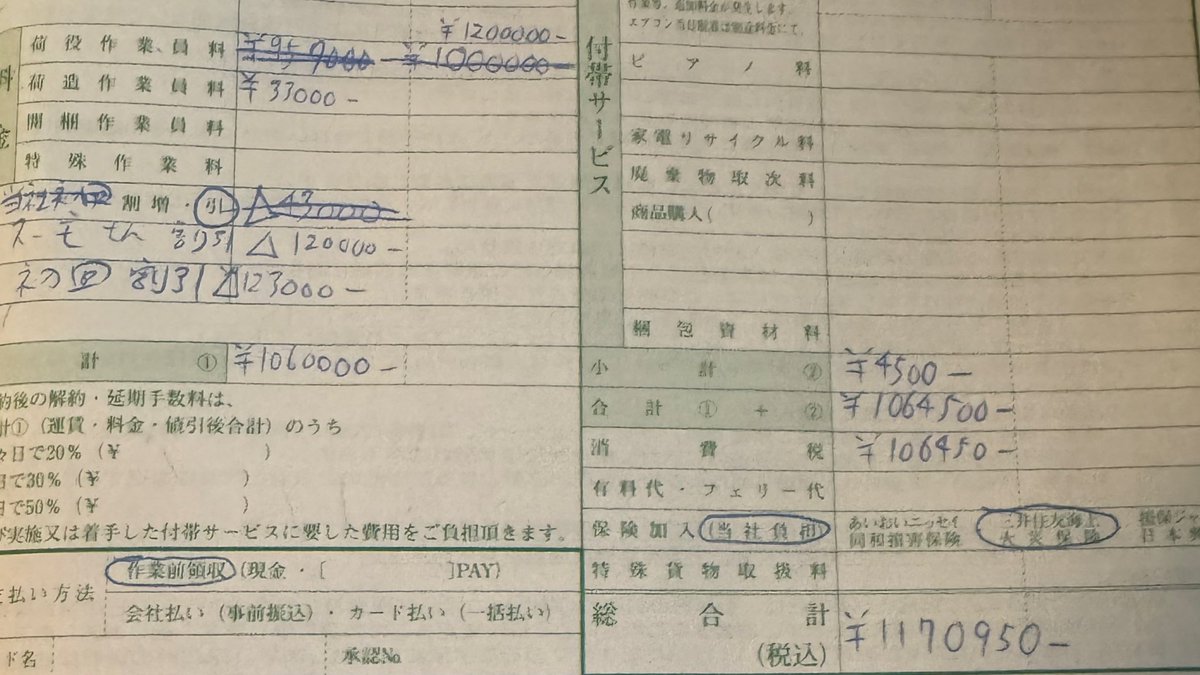 ¥1200000-
荷役作業員料 ¥959000- ¥1000000-
荷造作業員料 ¥33000-
開梱作業員料
特殊作業料
料金
当社ネット 割増・引 △43000-
スーモさん割り引 △120000-
ネット割引 △123000-
計① ¥1060000-
約後の解約・延期手数料は、
計①(運賃・料金・値引後合計)のうち
々日で20%(¥ )
日で30%(¥ )
日で50%(¥ )
び実施又は着手した付帯サービスに要した費用をご負担頂きます。
作業前領収(現金・[ ]PAY)
支払い方法
会社払い(事前振込)・カード払い(一括払い)
ド名 承認No.
エアコン当日脱着は別途料金にて。
付帯サービス
ピアノ料
家電リサイクル料
廃棄物取次料
商品購入( )
梱包資材料
小計② ¥4500-
合計①+② ¥1064500-
消費税 ¥106450-
有料代・フェリー代
保険加入(当社負担) あいおいニッセイ同和損害保険 三井住友海上火災保険 損保ジャ
特殊貨物取扱料
総合計(税込) ¥1170950-